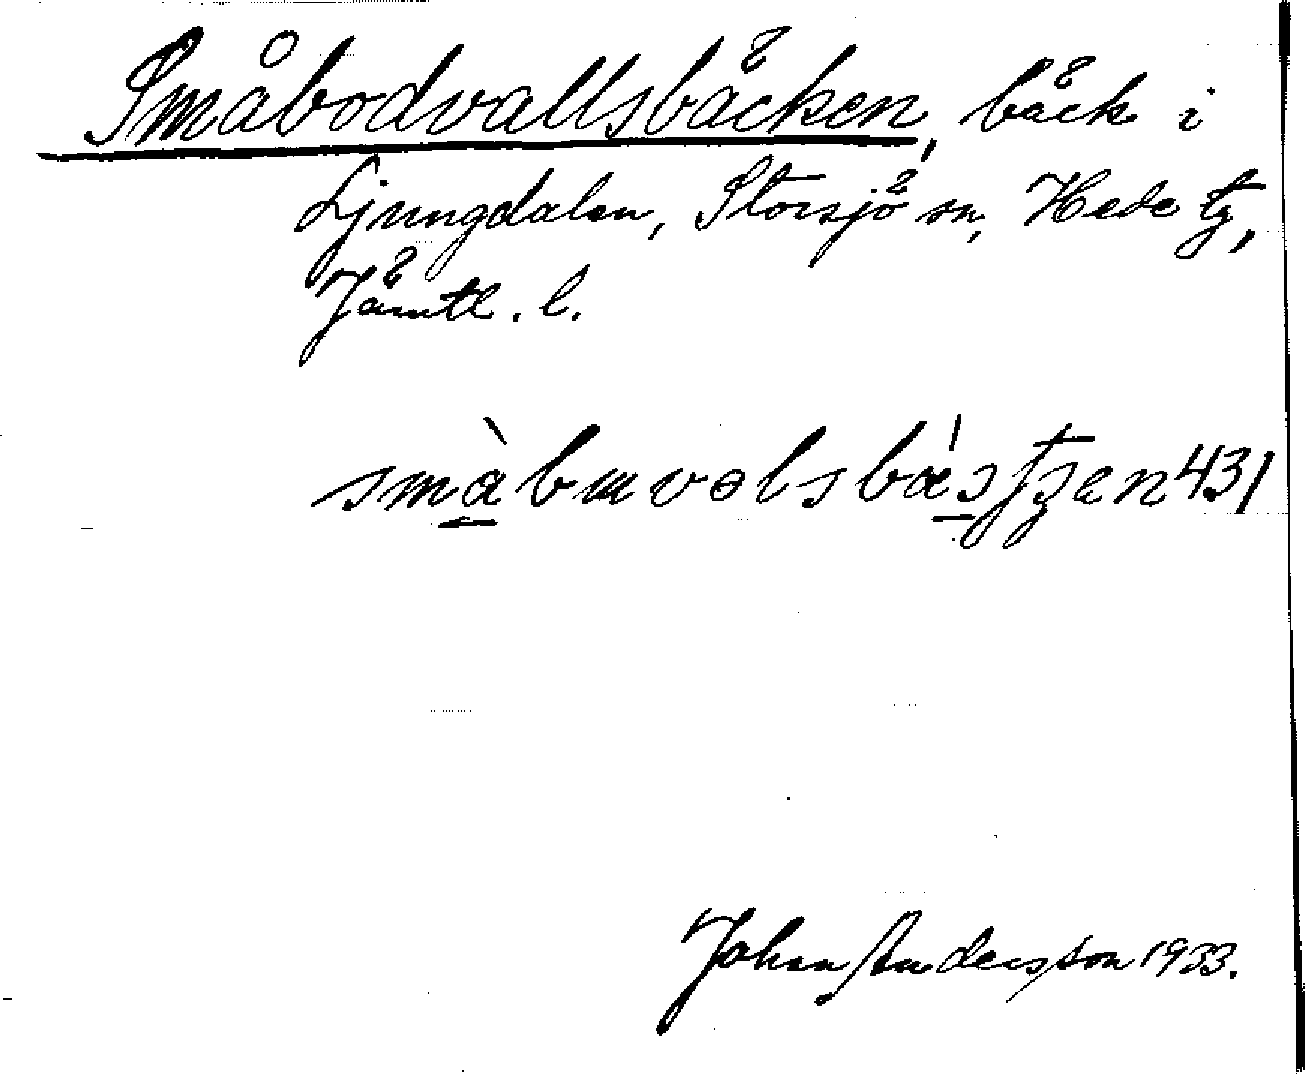 Småbodvallsbäcken, bäck i
Ljungdalen, Storsjö sn, Hede tg,
Jämtl. l.
431
Johan Andersson 1933.